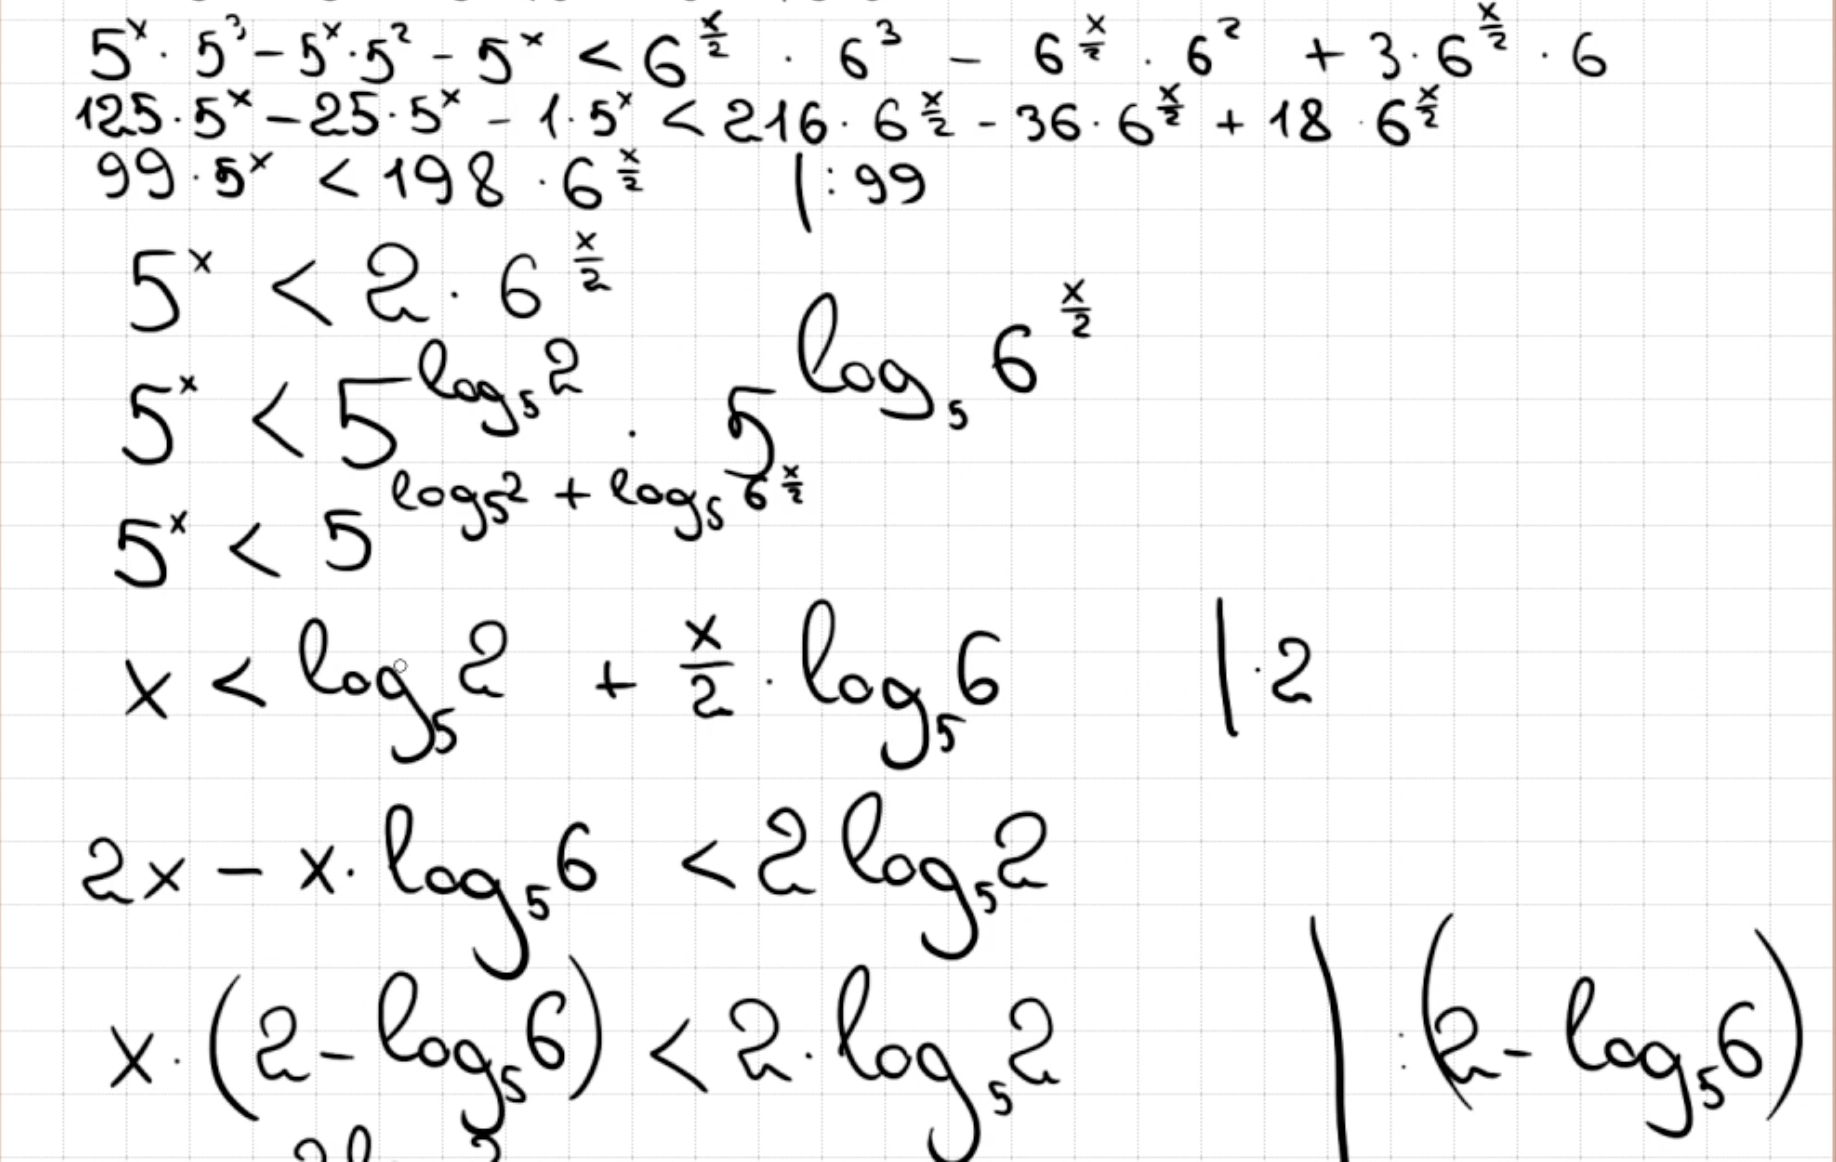 5^x · 5^3 - 5^x · 5^2 - 5^x < 6^(x/2) · 6^3 - 6^(x/2) · 6^2 + 3 · 6^(x/2) · 6
125 · 5^x - 25 · 5^x - 1 · 5^x < 216 · 6^(x/2) - 36 · 6^(x/2) + 18 · 6^(x/2)
99 · 5^x < 198 · 6^(x/2) | : 99
5^x < 2 · 6^(x/2)
5^x < 5^(log_5 2) · 5^(log_5 6^(x/2))
5^x < 5^(log_5 2 + log_5 6^(x/2))
x < log_5 2 + x/2 · log_5 6 | · 2
2x - x · log_5 6 < 2 log_5 2
x · (2 - log_5 6) < 2 · log_5 2 | : (2 - log_5 6)